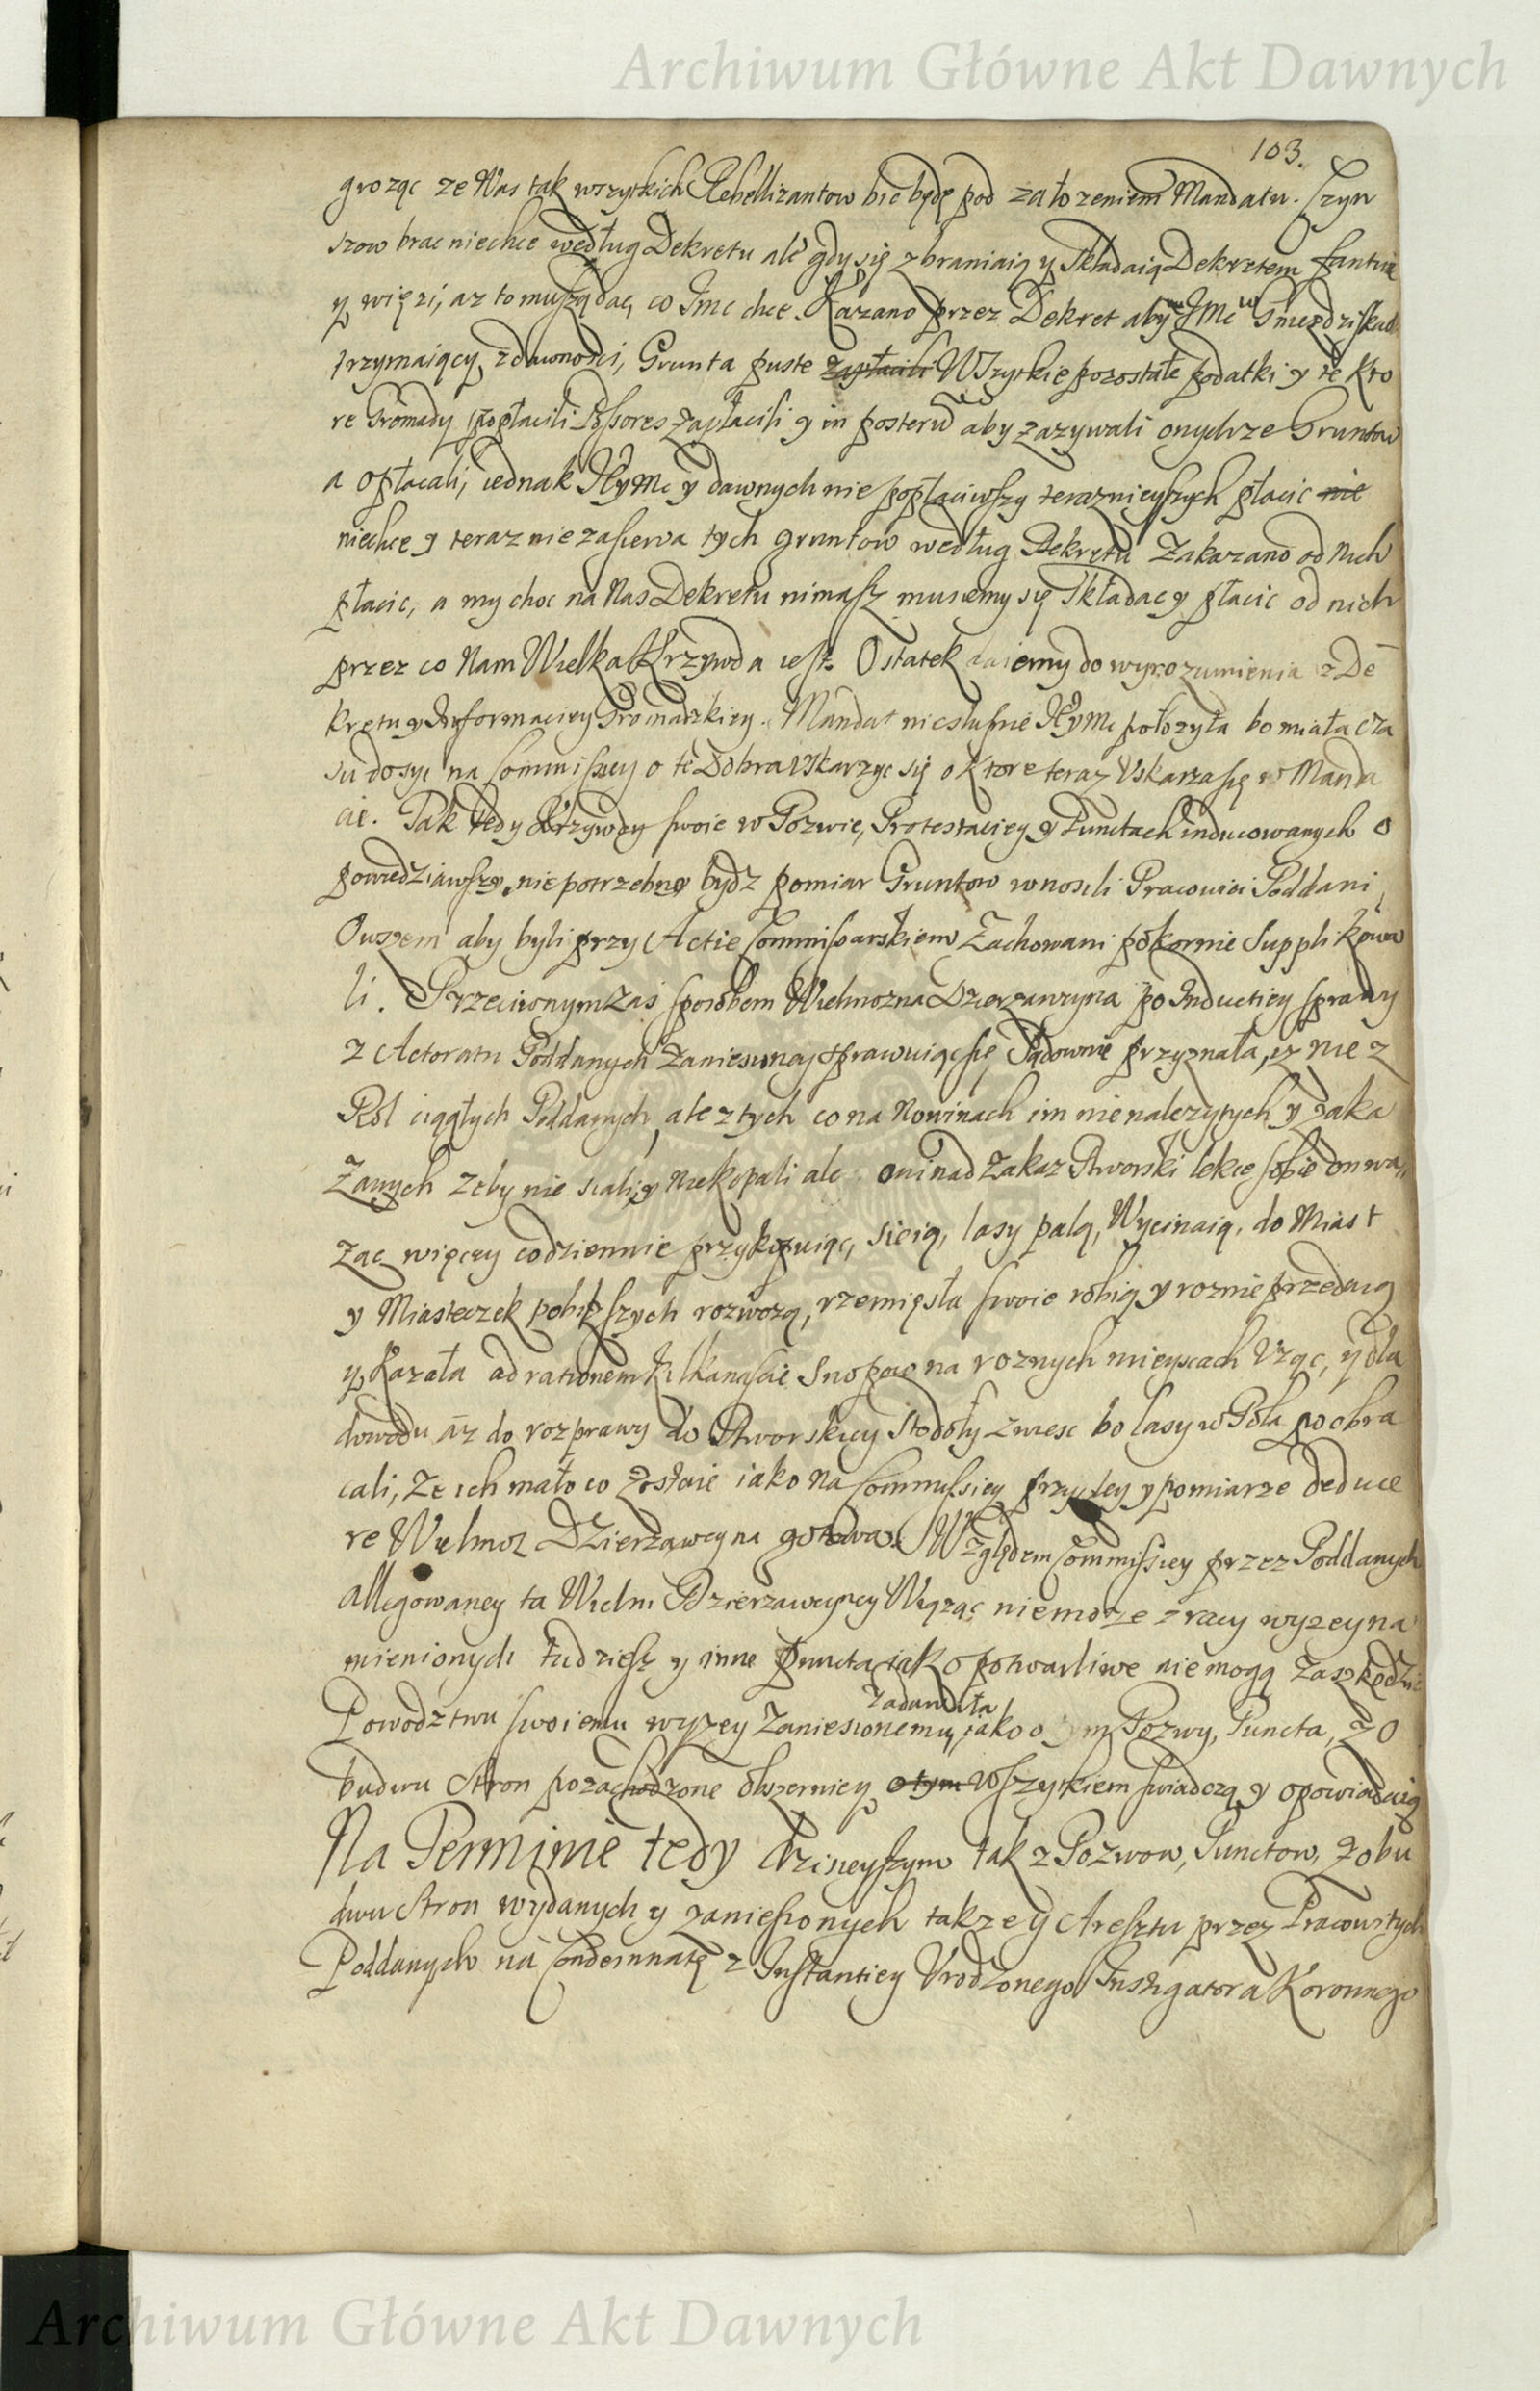 Archiwum Główne Akt Dawnych
103.
grożąc ze Was tak wszytkich Rebellizantow bic będę pod założeniem Mandatu. Czyn
szow brac niechce według Dekretu ale gdy się zbraniaią y składaią Dekretem fantuie
y więzi, az to muszą dac, co Jmc chce. Kazano przez Dekret aby JMc w Gniezdziskach
trzymaiący zdawnosci, Grunta puste zapłacili Wszytkie pozostałe podatki y te kto
re Gromady popłacili Possores zapłacili y in posterū aby zazywali onychze Gruntow
a opłacali, iednak Jey Mc y dawnych nie popłaciwszy teraznieyszych płacic nie
niechce y teraz nie zasiewa tych gruntow według Dekretu Zakazano od Nich
płacic, a my choc na Nas Dekretu nimasz musiemy się składac y płacic od nich
przez co Nam Wielka Krzywda iest. Ostatek daiemy do wyrozumienia z De
kretu y Informaciey Gromadzkiey. Mandat niesłusnie Jey Mc położyła bo miała cza
su dosyc na Commissiey o te Dobra Uskarzyc się o ktore teraz Uskarza się w Manda
cie. Tak tedy Krzywdy swoie w Pozwie, Protestaciey y Punctach inducowanych o
powiedziawszy, nie potrzebny bydz pomiar Gruntow wnosili Pracowici Poddani,
Owszem aby byli przy Actie Commissarskiem Zachowani pokornie Supplikowa
li. Przeciwnym zas sposobem Wielmozna Dzierzawczyna po Inductiey sprawy
z Actoratu Poddanych Zaniesioney sprawuiąc się Sądownie przyznała, iz nie z
Rol ciągłych Poddanych, ale z tych co na Nowinach im nienalezytych y zaka
Zanych zeby nie siali y niekopali ale oni nad Zakaz Dworski lekce sobie onwa
Zac więcey codziennie przykopuiąc, sieią, lasy palą, Wycinaią, do Miast
y Miasteczek poblizszych rozwożą, rzemięsła swoie robią y roznie przedaią
y Kazała ad rationem kilkanascie Snopow na roznych mieyscach Urąc, y dla
dowodu az do rozprawy do Dworskiey Stodoły zniesc bo lasy w Pola poobra
cali, ze ich mało co zostaie iako na Commissiey przyszłey y pomiarze deduce
re Wielmoz Dzierzawcyna gotowa. Względem Commissiey przez Poddanych
allegowaney ta Wielm Dzierzawcyney Wiązac niemoze z racy wyzey na
mienionych tudziesz y inne Puncta iako potwarliwe niemogą Zaszkodzic
Zadana ta
Powodztwu swoiemu wyzey Zaniesionemu, iako o tym Pozwy, Puncta, z o
budwu Stron pozachodzone obszerniey o tym Wszytkiem swiadczą y opowiadaią
Na Terminie tedy dzisieyszym tak z Pozwow, Punctow, z obu
dwu Stron wydanych y zaniesionych takze y Aresztu przez Pracowitych
Poddanych na Condemnatę z Instantiey Urodzonego Instigatora Koronnego
Archiwum Główne Akt Dawnych